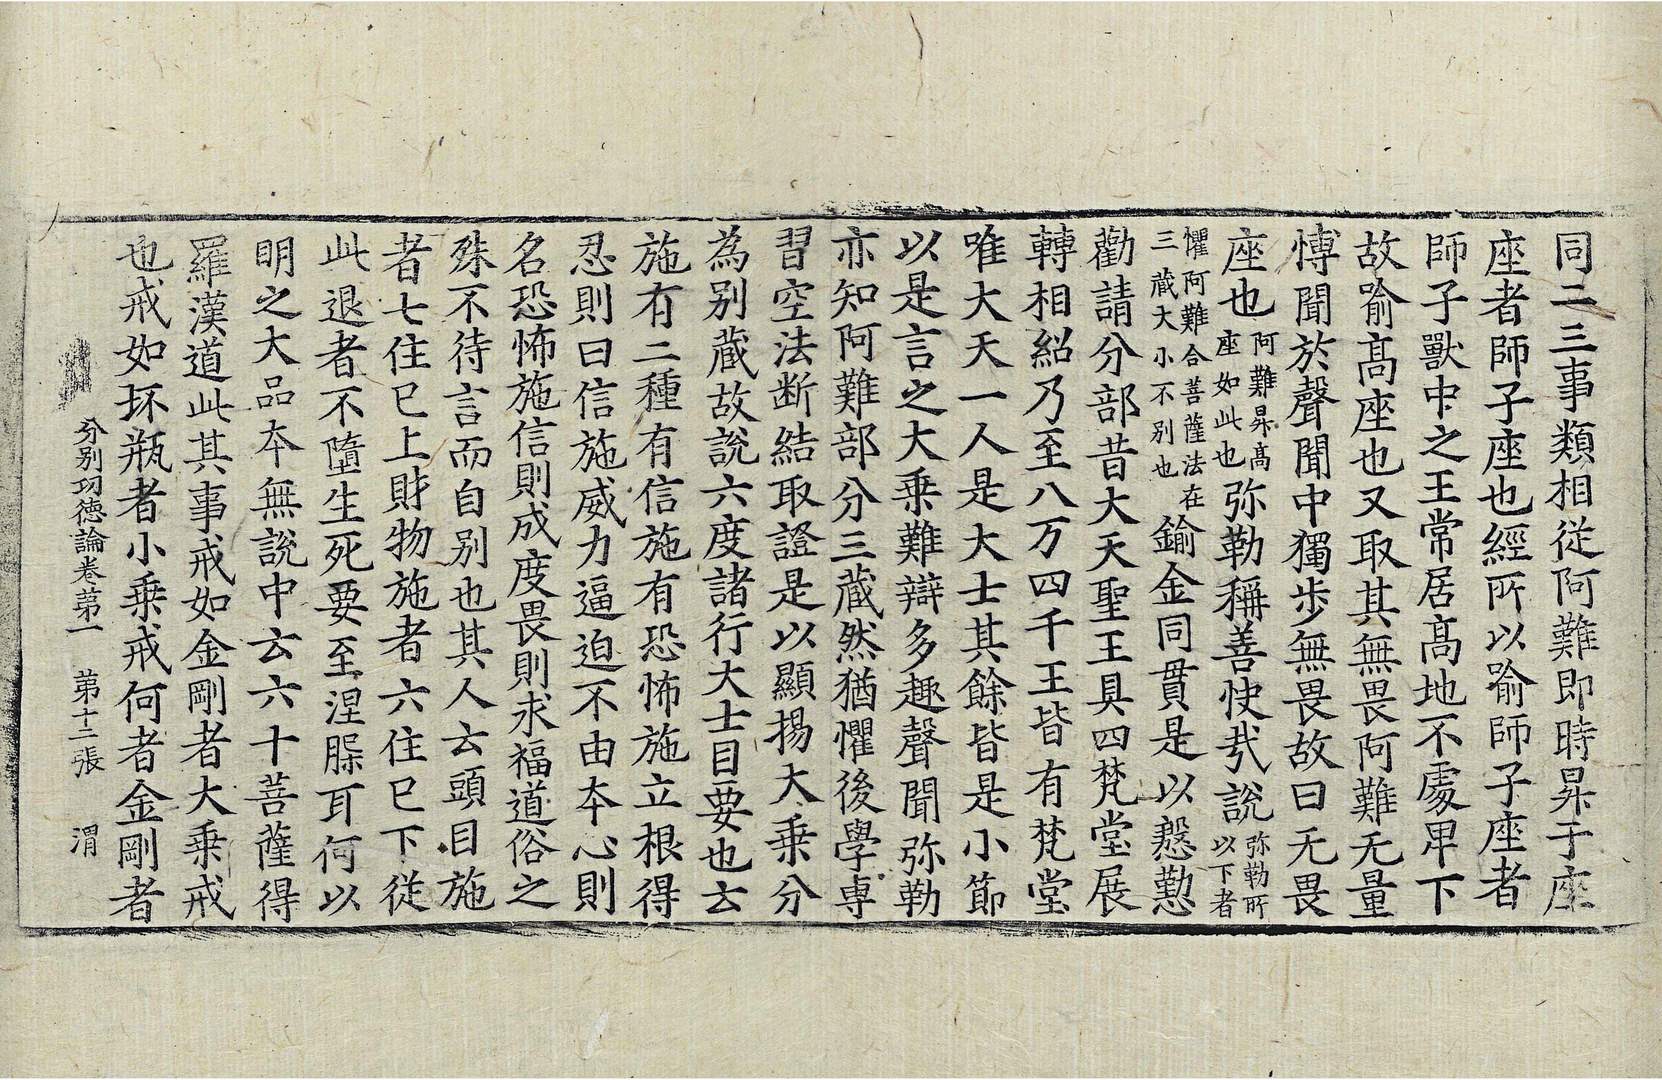 同二三事類相從阿難即時昇于座
座者師子座也經所以喻師子座者
師子獸中之王常居髙地不處卑下
故喻髙座也又取其無畏阿難无量
愽聞於聲聞中獨步無畏故曰无畏
座也阿難昇髙座如此也弥勒稱善快㢤說弥勒所以下者
懼阿難合菩薩法在三藏大小不别也鍮金同貫是以慇懃
勸請分部昔大天聖王具四梵堂展
轉相紹乃至八万四千王皆有梵堂
唯大天一人是大士其餘皆是小節
以是言之大乗難辯多趣聲聞弥勒
亦知阿難部分三藏然猶懼後學專
習空法断結取證是以顯揚大乗分
為别藏故說六度諸行大士目要也云
施有二種有信施有恐怖施立根得
忍則曰信施威力逼迫不由本心則
名恐怖施信則成度畏則求福道俗之
殊不待言而自别也其人云頭目施
者七住已上財物施者六住已下從
此退者不墮生死要至涅槃耳何以
明之大品本無說中云六十菩薩得
羅漢道此其事戒如金剛者大乗戒
也戒如坏瓶者小乗戒何者金剛者
分别功德論卷第一　第十三張　渭